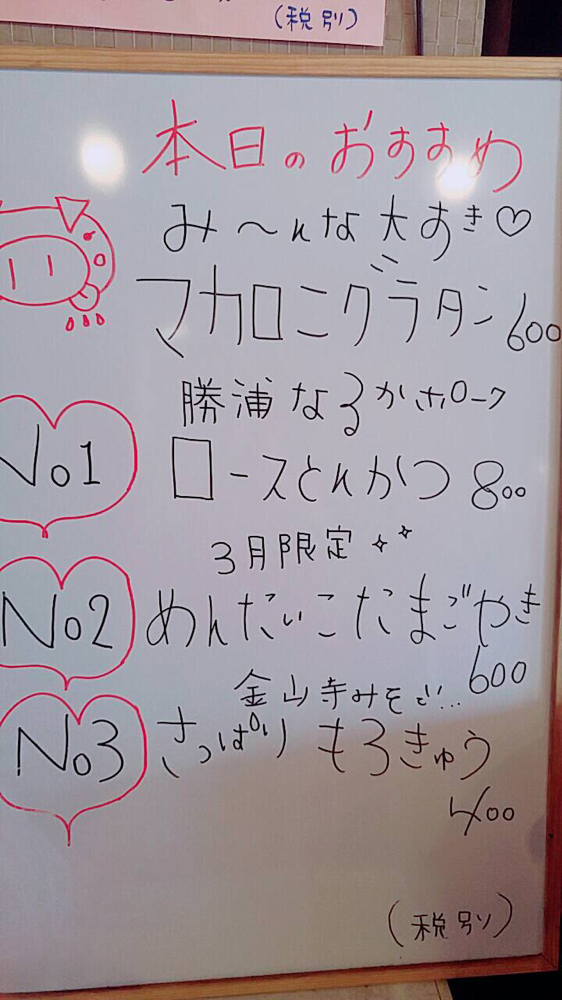 (税別)
本日のおすすめ
み〜んな大すき♡
マカロニグラタン 600
勝浦なるかポーク
No1 ロースとんかつ 800
3月限定
No2 めんたいこたまごやき
600
金山寺みそで...
No3 さっぱり もろきゅう
400
(税別)